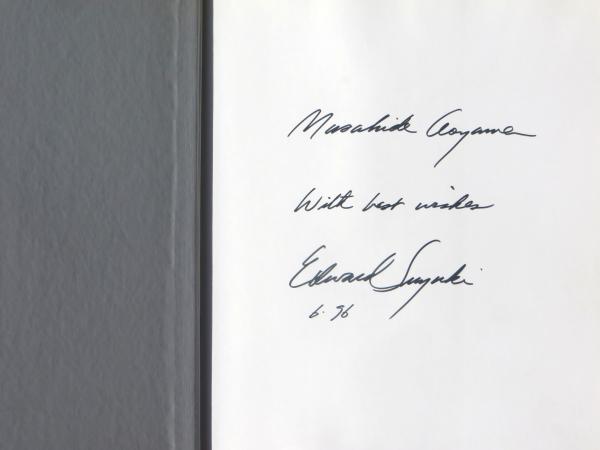 Masahide Aoyama
With best wishes
Edward Suzuki
6. 96